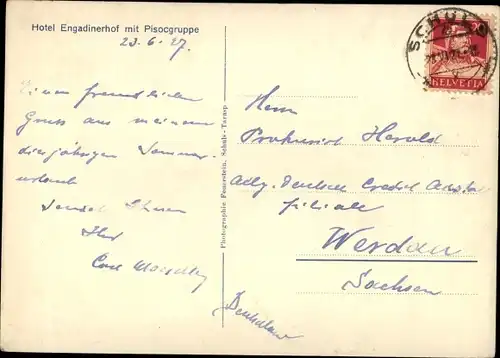 Hotel Engadinerhof mit Pisocgruppe
23.6.27.
Einen freundlichen
Gruss aus meinem
diesjährigen Sommer-
urlaub
sendet Ihnen
Ihr
Carl
Photographie Feuerstein, Schuls-Tarasp
SCHULS
HELVETIA
Herrn
Prokurist Herold
Allg. Deutsche Credit Anstalt
Filiale
Werdau
Sachsen
Deutschland